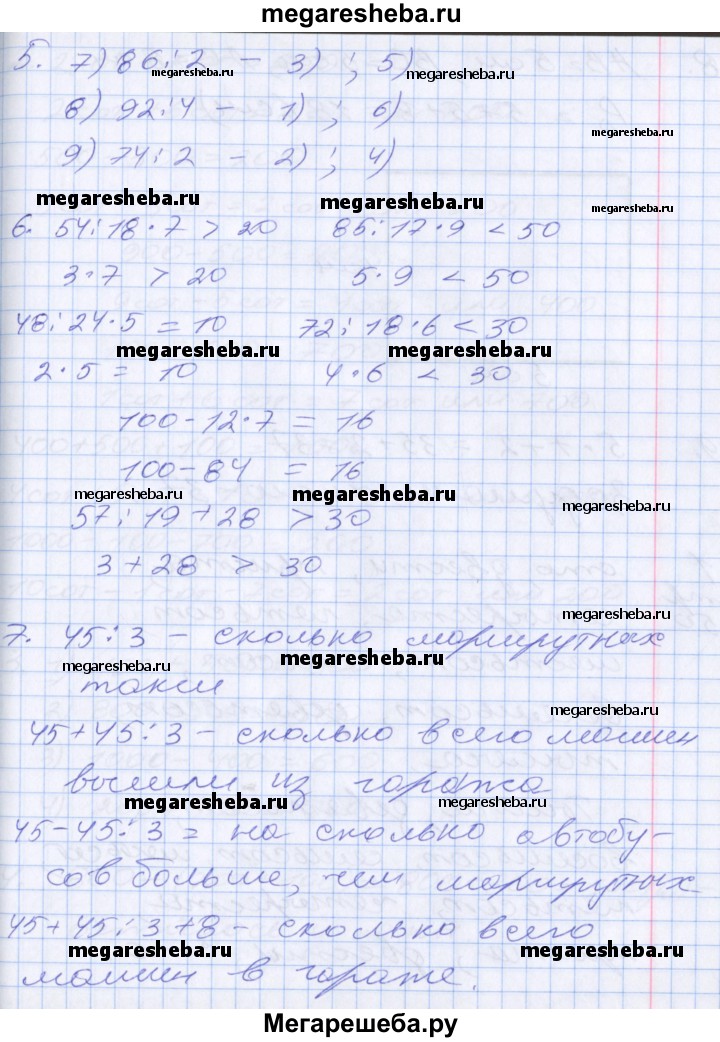 megaresheba.ru
5. 7) 86:2 - 3) ; 5)
megaresheba.ru megaresheba.ru
8) 92:4 - 1) ; 6)
megaresheba.ru
9) 74:2 - 2) ; 4)
megaresheba.ru megaresheba.ru megaresheba.ru
6. 54:18·7 > 20 85:17·9 < 50
3·7 > 20 5·9 < 50
48:24·5 = 10 72:18·6 < 30
megaresheba.ru megaresheba.ru
2·5 = 10 4·6 < 30
100-12·7 = 16
100-84 = 16
megaresheba.ru megaresheba.ru megaresheba.ru
57:19+28 > 30
3+28 > 30
megaresheba.ru
7. 45:3 - сколько маршрутных
megaresheba.ru megaresheba.ru
такси
megaresheba.ru
45+45:3 - сколько всего машин
вышли из гаража
megaresheba.ru megaresheba.ru
45-45:3 = на сколько автобу-
сов больше, чем маршрутных
45+45:3+8 - сколько всего
megaresheba.ru megaresheba.ru
машин в гараже.
Мегарешеба.ру